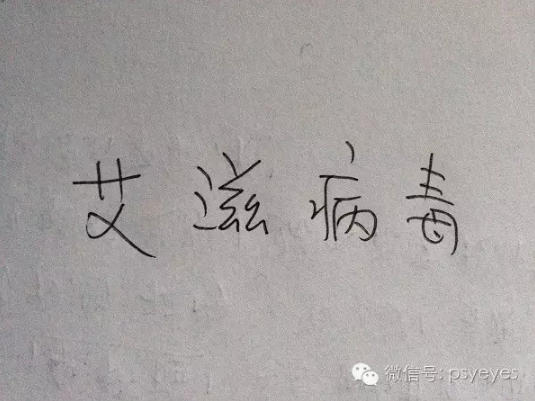 艾滋病毒
微信号: psyeyes